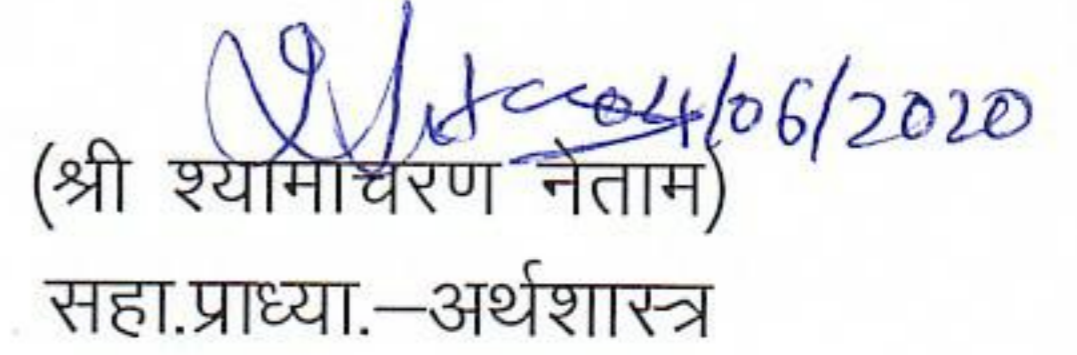 04/06/2020
(श्री श्यामाचरण नेताम)
सहा.प्राध्या.–अर्थशास्त्र